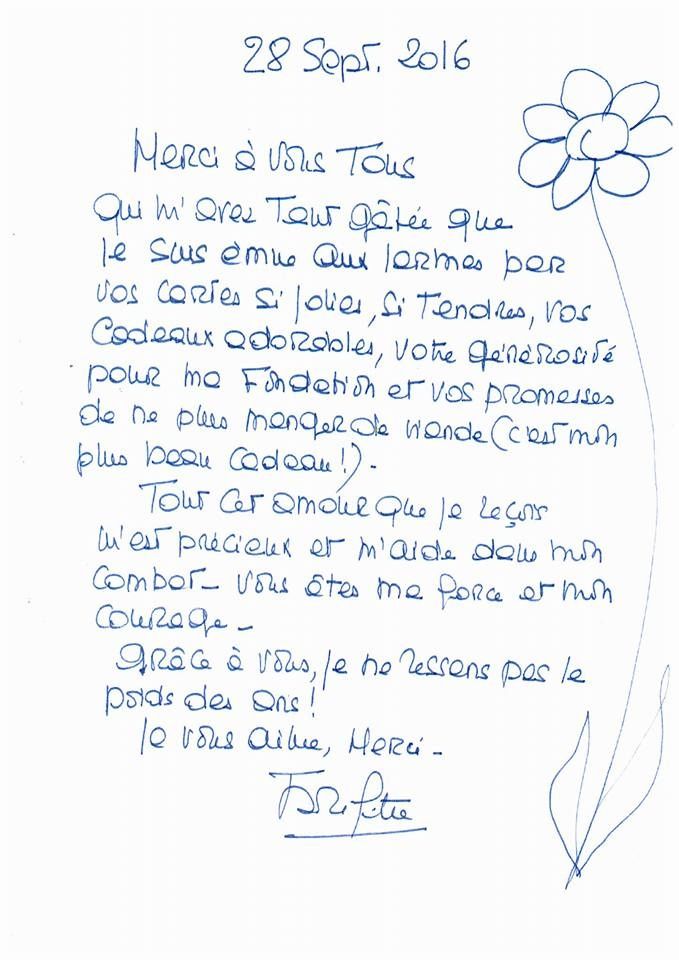 28 Sept. 2016
Merci à vous Tous
Qui m'avez Tant gâtée que
je suis émue aux larmes par
vos cartes si jolies, si Tendres, vos
Cadeaux adorables, votre générosité
pour ma Fondation et vos promesses
de ne plus manger de viande (c'est mon
plus beau cadeau!).
Tout cet amour que je reçois
m'est précieux et m'aide dans mon
Combat_ vous êtes ma force et mon
courage_
Grâce à vous, je ne ressens pas le
poids des ans!
Je vous aime, Merci_
Brigitte